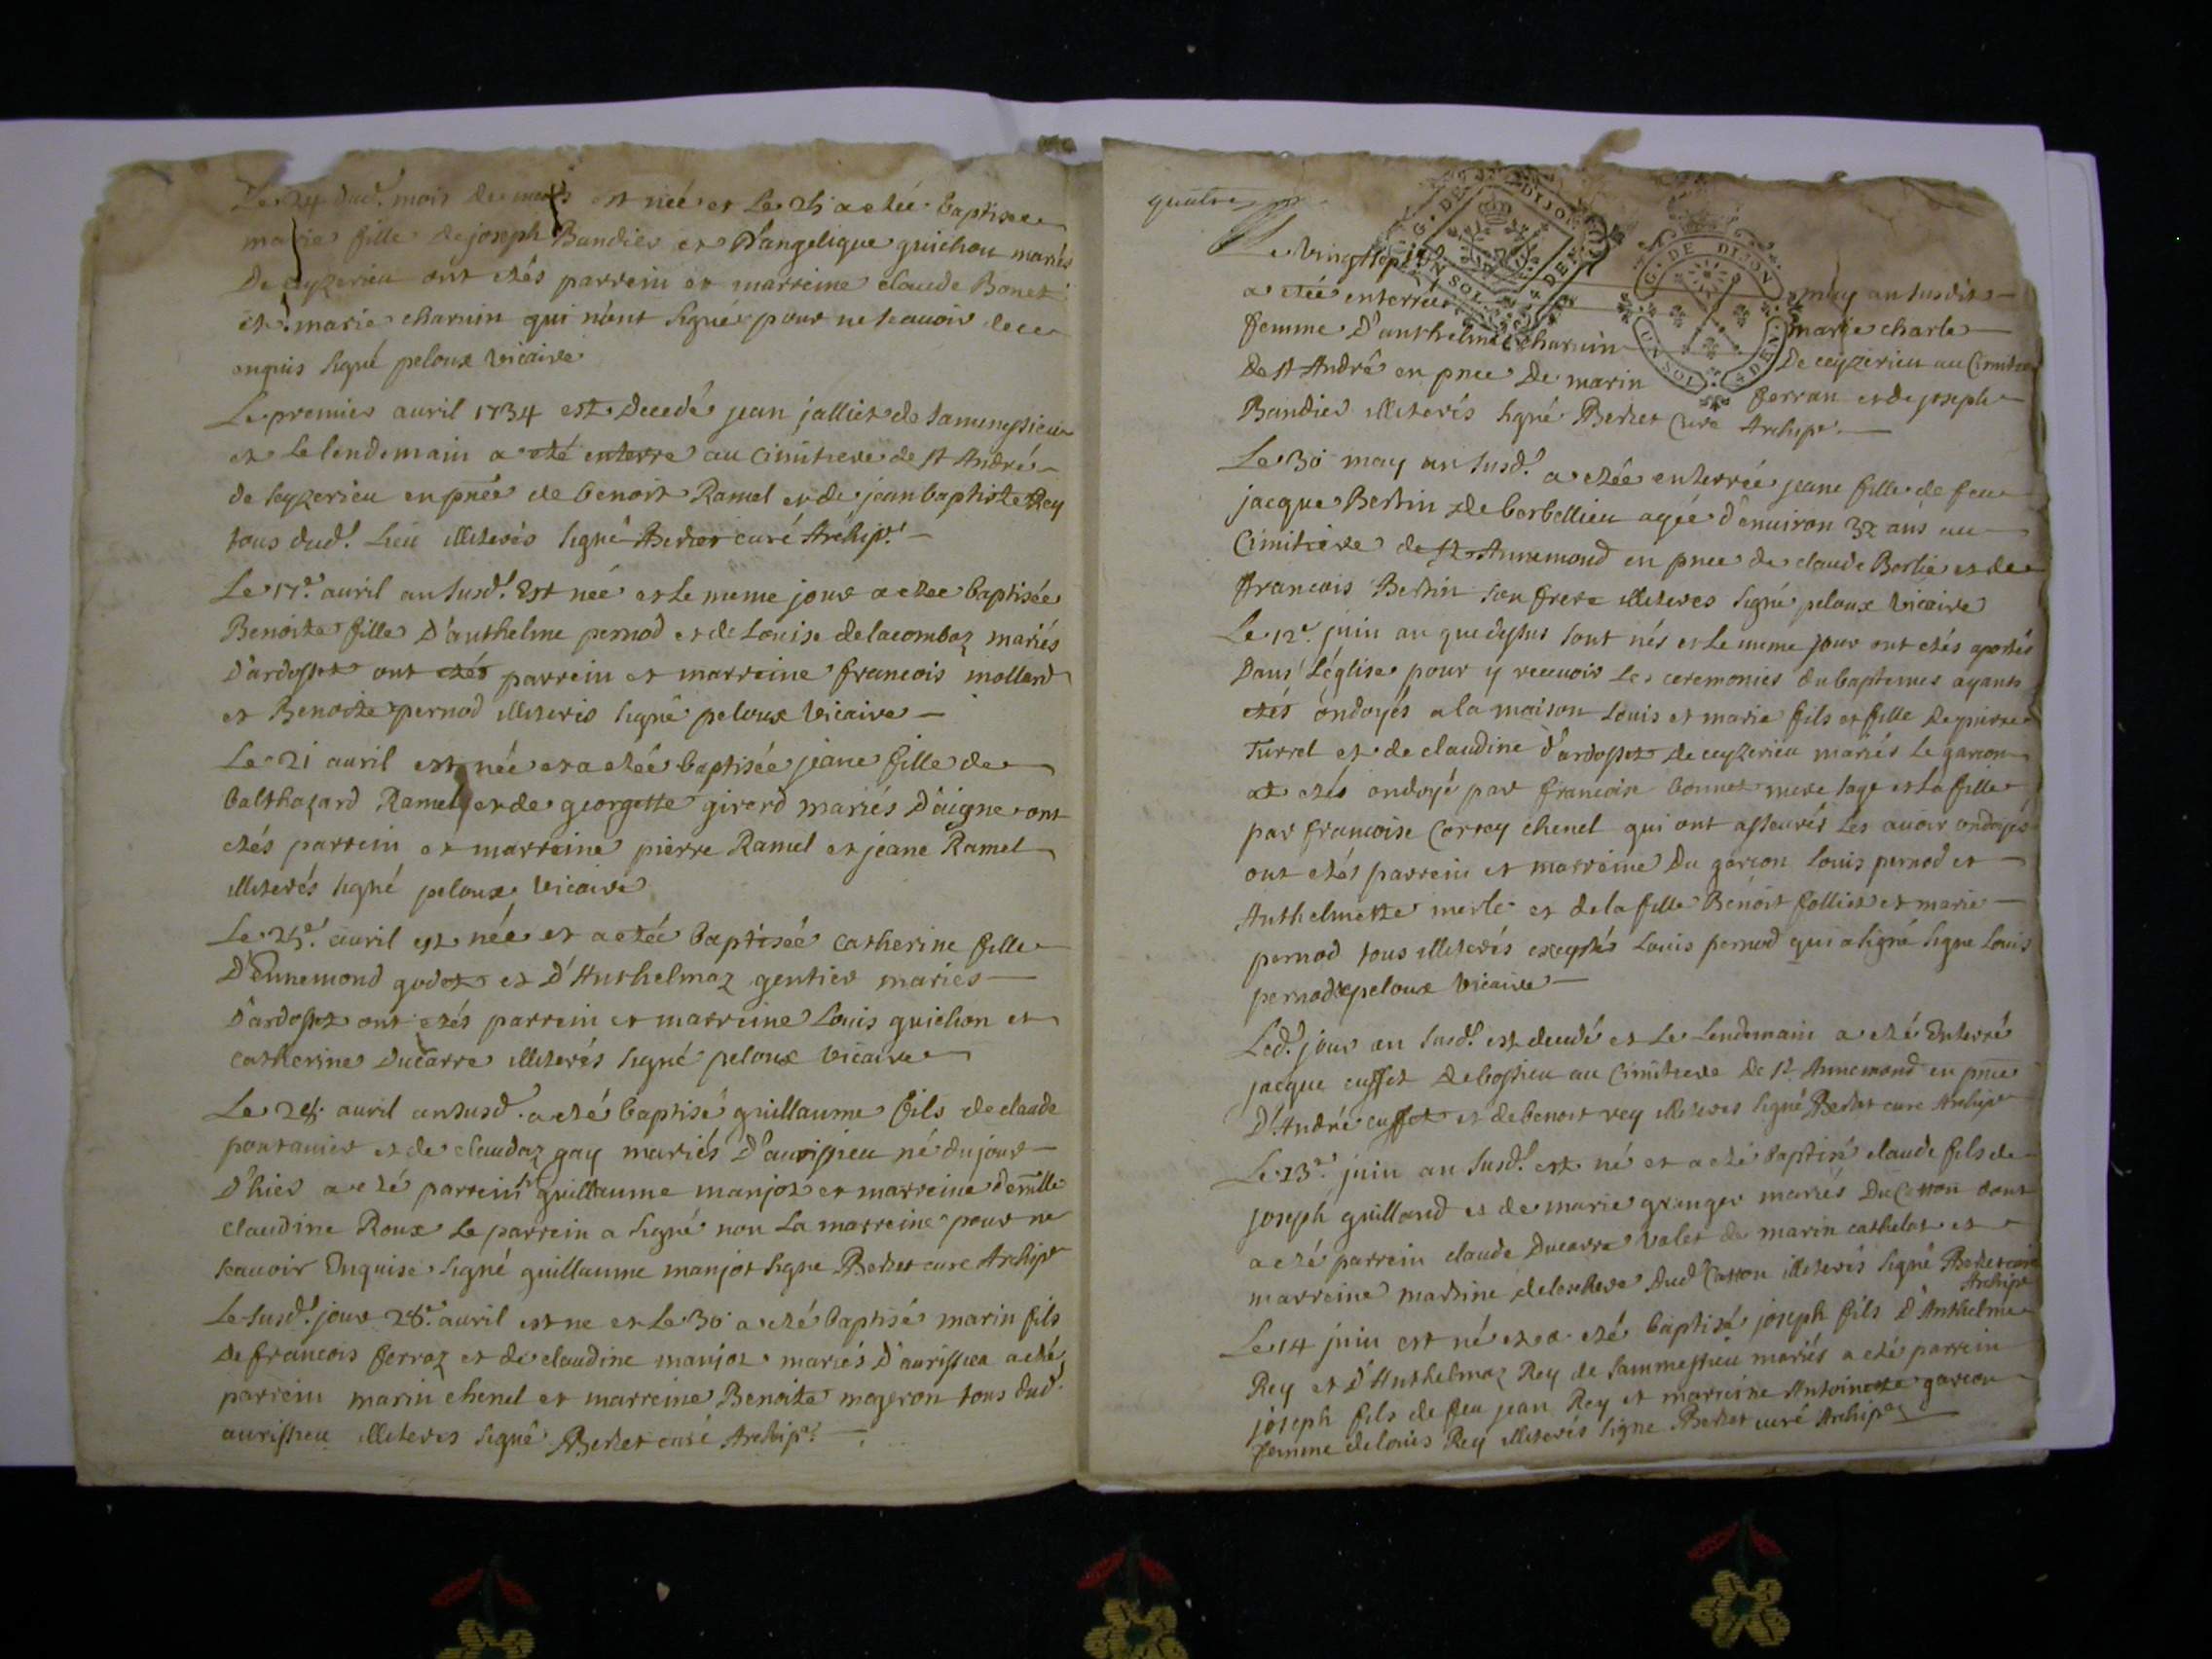 Le 24 dud.t mois de mars est née et le 25 a etée baptisée
marie fille de joseph Bandier et D'angelique guichon mariés
De ceyzerieu ont etés parrein et marreine claude Bonet
et marie charuin qui n'ont signé pour ne scavoir de ce
enquis signé peloux vicaire
Le premier auril 1734 est decedé jean jalliet de sammessieu
et le lendemain a eté enterre au cimitiere de st André
de seyzerieu en pnée de benoit Ramel et de jean baptiste Rey
tous dud.t Lieu illiterés signé Berlet curé Archip.t
Le 17.e auril an susd.t Est neé et le meme jour a etee baptisée
Benoite fille D'anthelme pernod et de Louise delacombaz mariés
D'ardosset ont etés parrein et marreine francois mollard
et Benoite pernod illiterés signé peloux vicaire
Le 21 auril est née et a etée baptisée jeane fille de
balthazard Ramel et de georgette girerd mariés D'aigne ont
etés parrein et marreine pierre Ramel et jeane Ramel
illiterés signé peloux vicaire
Le 25.e auril est née et a etée baptisée catherine fille
D'Ennemond godet et D'Anthelmaz gentier mariés
D'ardosset ont etés parrein et marreine Louis guichon et
catherine Ducarre illiterés signé peloux vicaire
Le 28. auril an susd.t a eté baptisé guillaume fils de claude
pontanier et de claudaz gay mariés D'aurissieu né du jour
D'hier a eté parrein guillaume manjot et marreine demlle
claudine Roux Le parrein a signé non La marreine pour ne
scauoir Enquise signé guillaume manjot signe Berlet cure Archipt
Le susd.t jour 28.e auril est ne et Le 30 a eté baptisé marin fils
De francois ferraz et de claudine manjot mariés D'aurissieu a eté
parrein marin chenel et marreine Benoite mogeron tous dud.
aurissieu illiterés signé Berlet curé Archip.t
quatre
Le vingt sept
may an susdit
a etée enterrée
marie charle
femme D'anthelme charuin
De ceyzerieu au Cimitiere
De st André en pnee De marin
ferran et de joseph
Bandier illiterés signé Berlet Cure Archip.t
Le 30 may an susd.t a etée enterrée jeane fille de feu
jacque Bertin de berbellieu agée d'enuiron 32 ans au
Cimitiere de st Annemond en pnee de claude Bertin et de
francois Bertin son frere illiteres signé peloux vicaire
Le 12.e juin an que dessus sont nés et Le meme jour ont etés aportés
Dans L'église pour y receuoir Les ceremonies du baptemes ayants
etés ondoyés a la maison Louis et marie fils et fille De pierre
Turrel et de claudine d'ardosset de ceyzerieu mariés Le garcon
at etés ondoyé par francoise bonnet mere sage et La fille
par francoise Correy chenel qui ont asseurés Les auoir ondoyes
ont etés parrein et marreine Du garcon Louis pernod et
Anthelmette merle et de la fille Benoit folliet et marie
pernod tous illiterés exeptés Louis pernod qui a signé signe Louis
pernod et peloux vicaire
Led.t jour an susd.t est decedé et Le Lendemain a eté Enterré
jacque cuffet de bossieu au Cimitiere De st Annemond en pnee
D'André cuffet et de benoit rey illiteres signé Berlet cure Archipt
Le 13.e juin an susd.t est né et a eté baptisé claude fils de
joseph guilland et de marie granger mariés Du Catton dont
a eté parrein claude Ducarre valet de marin cathelat et
marreine martine delechere dud Catton illiterés signé Berlet curé
Archipt
Le 14 juin est né et a eté baptisé joseph fils D'Anthelme
Rey et D'Anthelmaz Rey de sammessieu mariés a eté parrein
joseph fils de feu jean Rey et marreine Antoinette garcon
femme de louis Rey illiterés signe Berlet curé Archipt